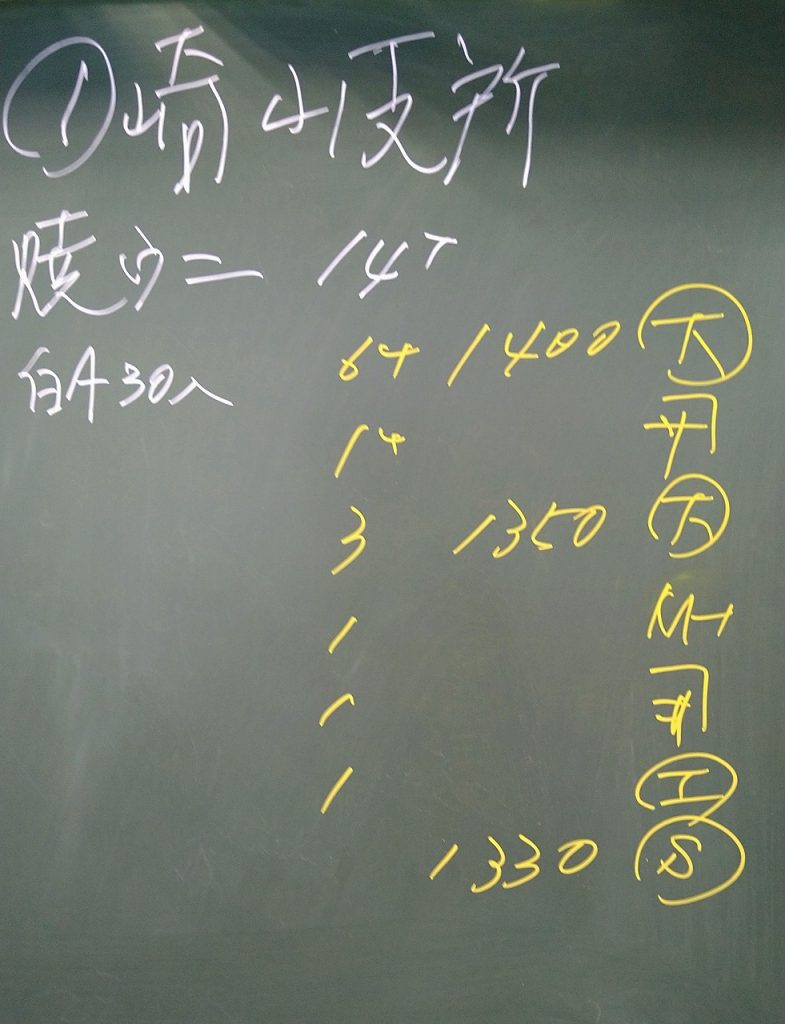 ①崎山支所
焼ウニ 14T
白A30入
64 1400 ㊦
14
3 1350 ㊦
1 MH
1
1 Ⓘ
1330 Ⓢ